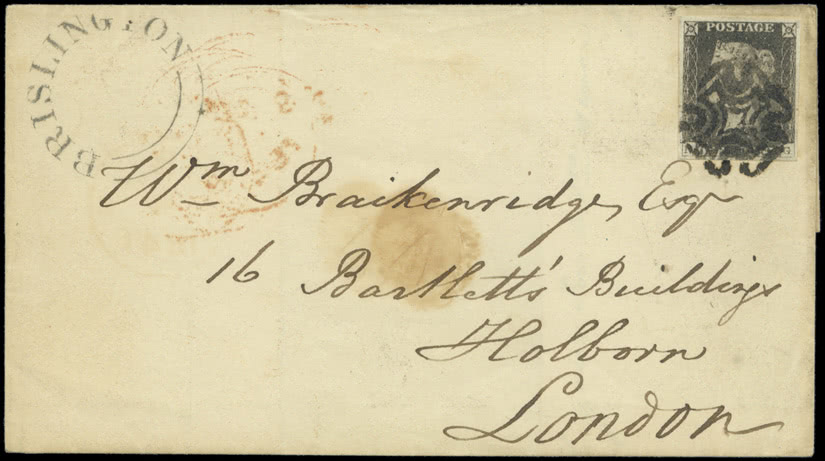 BRISLINGTON
POSTAGE
Wm Braikenridge, Esqr
16 Bartlett's Buildings
Holborn
London